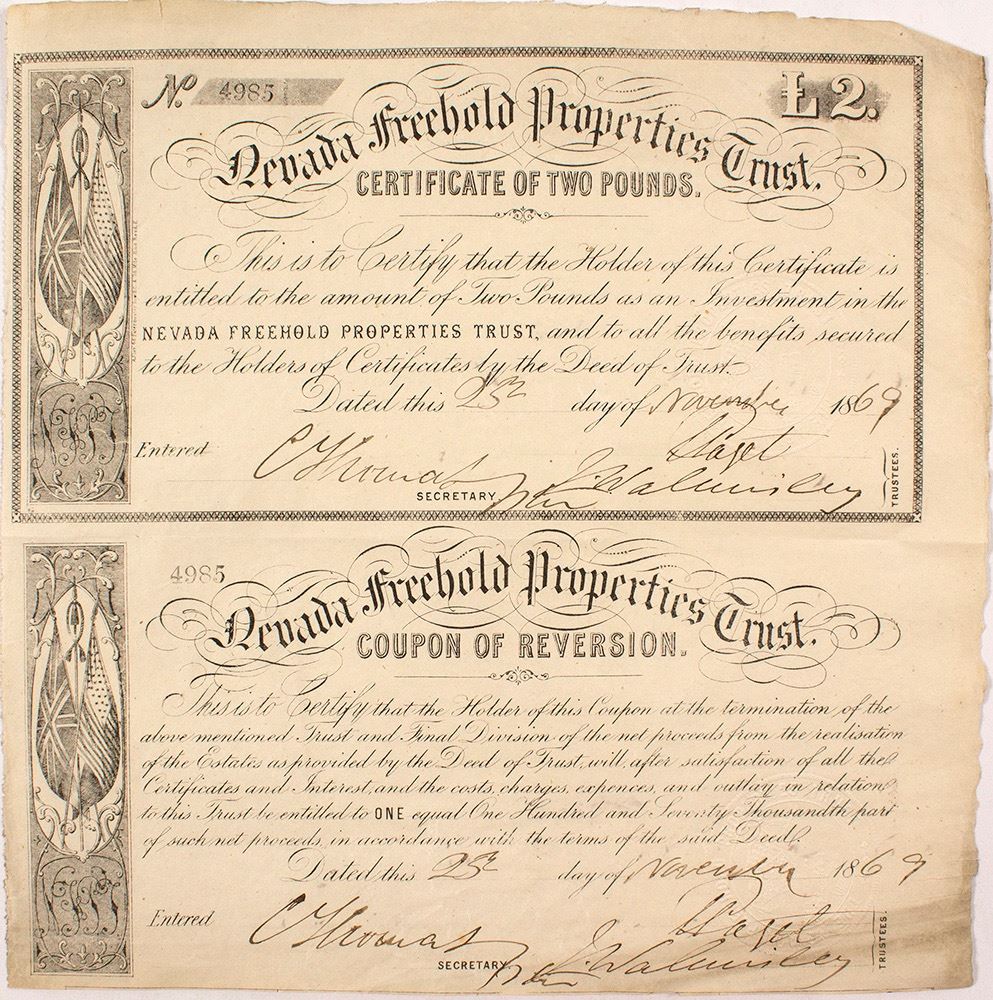 No. 4985
£2.
Nevada Freehold Properties Trust.
CERTIFICATE OF TWO POUNDS.
This is to Certify that the Holder of this Certificate is
entitled to the amount of Two Pounds as an Investment in the
NEVADA FREEHOLD PROPERTIES TRUST, and to all the benefits secured
to the Holders of Certificates by the Deed of Trust.
Dated this 25th day of November 1869
Entered
C Thomas
SECRETARY
TRUSTEES.
NFPT
4985
Nevada Freehold Properties Trust.
COUPON OF REVERSION.
This is to Certify that the Holder of this Coupon at the termination of the
above mentioned Trust and Final Division of the net proceeds from the realisation
of the Estates as provided by the Deed of Trust, will, after satisfaction of all the
Certificates and Interest, and the costs, charges, expences, and outlay in relation
to this Trust be entitled to ONE equal One Hundred and Seventy Thousandth part
of such net proceeds, in accordance with the terms of the said Deed.
Dated this 25th day of November 1869
Entered
C Thomas
SECRETARY
TRUSTEES.
NFPT